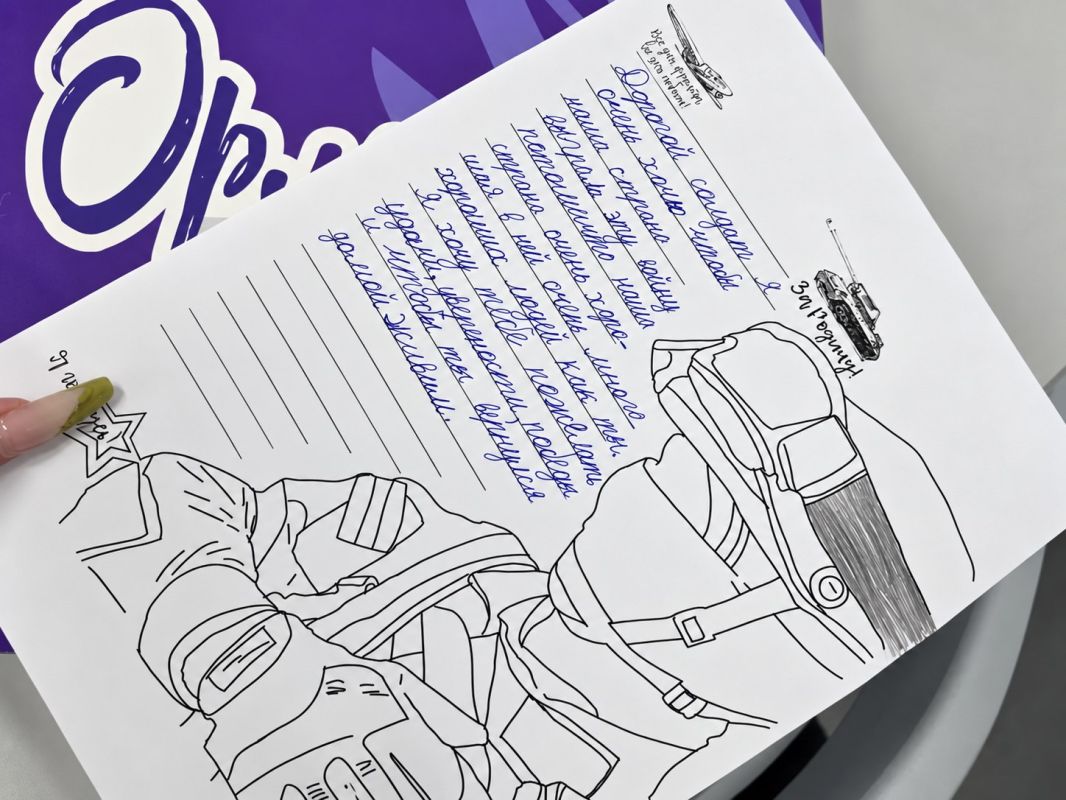 Ор
Все для фронта,
все для победы!
За Родину!
Дорогой солдат я
очень хочю чтобы
наша страна
выграла эту войну
потамушто наша
страна очень хоро-
шая в ней очень много
хороших людей как ты.
Я хочу тебе пожелать
удачи, уверености, победы
и чтобы ты вернулся
домой живым.